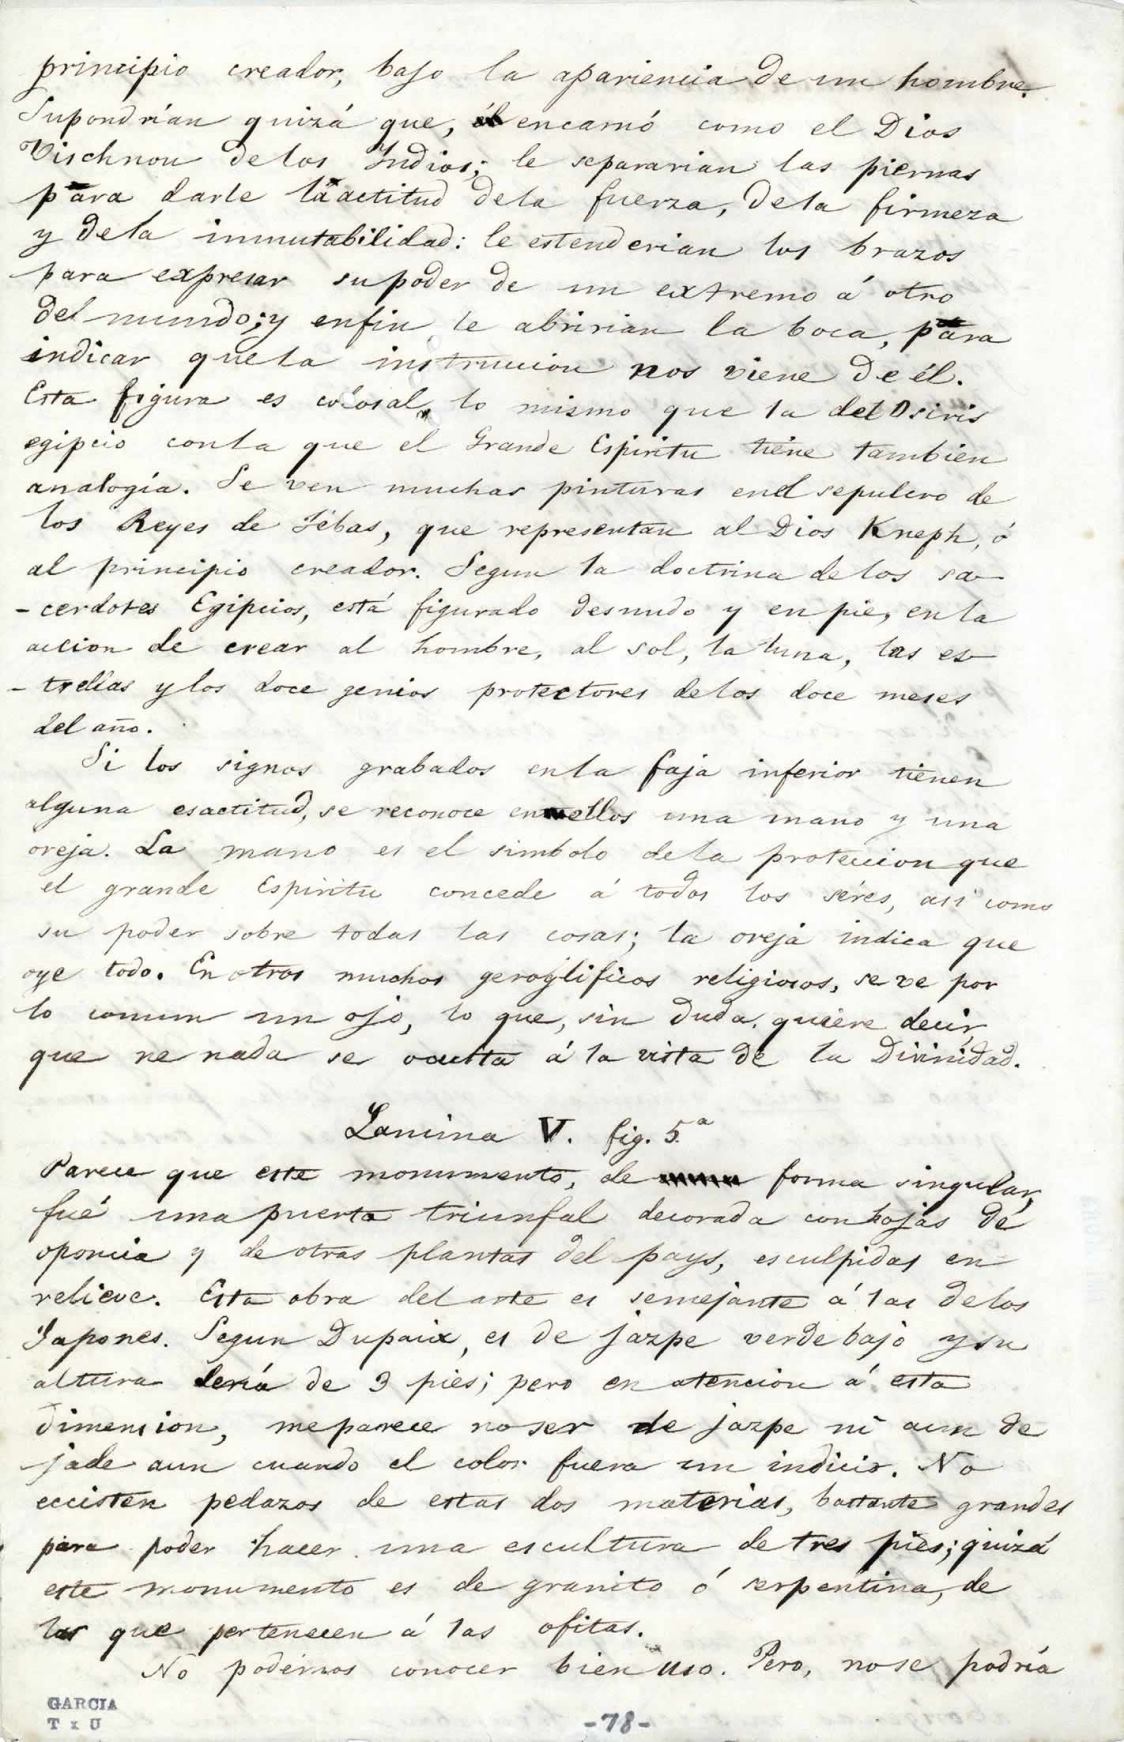 principio creador, bajo la apariencia de un hombre.
Supondrían quizá que, él encarnó como el Dios
Vischnou de los Indios; le separarian las piernas
para darle la actitud dela fuerza, dela firmeza
y dela inmutabilidad: le estenderian los brazos
para expresar su poder de un extremo á otro
del mundo; y enfin le abririan la boca, para
indicar que la instruccion nos viene de él.
Esta figura es colosal, lo mismo que la del Osiris
egipcio con la que el Grande Espiritu tiene tambien
analogía. Se ven muchas pinturas en el sepulcro de
los Reyes de Tébas, que representan al Dios Kneph, ó
al principio creador. Segun la doctrina de los sa-
-cerdotes Egipcios, está figurado desnudo y en pie, en la
accion de crear al hombre, al sol, la luna, las es-
-trellas y los doce genios protectores de los doce meses
del año.
Si los signos grabados en la faja inferior tienen
alguna esactitud, se reconoce en ellos una mano y una
oreja. La mano es el simbolo de la proteccion que
el grande Espiritu concede á todos los séres, asi como
su poder sobre todas las cosas; la oreja indica que
oye todo. En otros muchos geroglificos religiosos, se ve por
lo comun un ojo, lo que, sin duda, quiere decir
que ne nada se oculta á la vista de la Divinidad.
Lamina V. fig. 5.ª
Parece que este monumento, de forma singular,
fué una puerta triunfal decorada con hojas de
oponcia y de otras plantas del pays, esculpidas en
relieve. Esta obra del arte es semejante á las de los
Japones. Segun Dupaix, es de jazpe verde bajo y su
altura sería de 3 pies; pero en atencion á esta
dimension, me parece no ser de jazpe ni aun de
jade aun cuando el color fuera un indicio. No
eccisten pedazos de estas dos materias, bastante grandes
para poder hacer una escultura de tres pies; quizá
este monumento es de granito ó serpentina, de
las que pertenecen á las ofitas.
No podémos conocer bien uso. Pero, no se podría
GARCIA
T x U
-78-